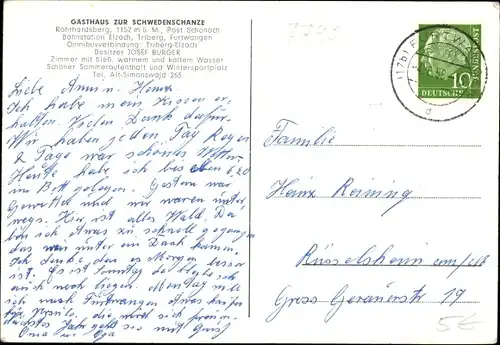 GASTHAUS ZUR SCHWEDENSCHANZE
Rohrhardsberg, 1152 m ü. M., Post Schonach
Bahnstation Elzach, Triberg, Furtwangen
Omnibusverbindung: Triberg-Elzach
Besitzer JOSEF BURGER
Zimmer mit fließ. warmem und kaltem Wasser
Schöner Sommeraufenthalt und Wintersportplatz
Tel. Alt-Simonswald 265
Liebe Anni u. Heinz.
Ich habe in ein Kissen er-
halten. Vielen Dank dafür.
Wir haben jeden Tag Regen
2 Tage war schönes Wetter
Heute habe ich bis eben 6.20
im Bett gelegen. Gestern war
Gewitter und wir waren unter
wegs. Hier ist alles Wald. Da
bin ich etwas zu schnell gegangen
das wir unter ein Dach kamen.
Ich denke das es Morgen besser
ist. Es ist Sonntag da bleibe ich
auch noch liegen. Montag will
ich nach Furtwangen etwas kaufen
für die wird sich freuen.
nächstes Jahr geht sie mit Gruß
Oma u. Opa
(17b) FURTWANGEN
10
DEUTSCHE BUNDESPOST
a
Familie
Heinz Reining
Rüsselsheim am/
Gross Gerauerstr 19
5€